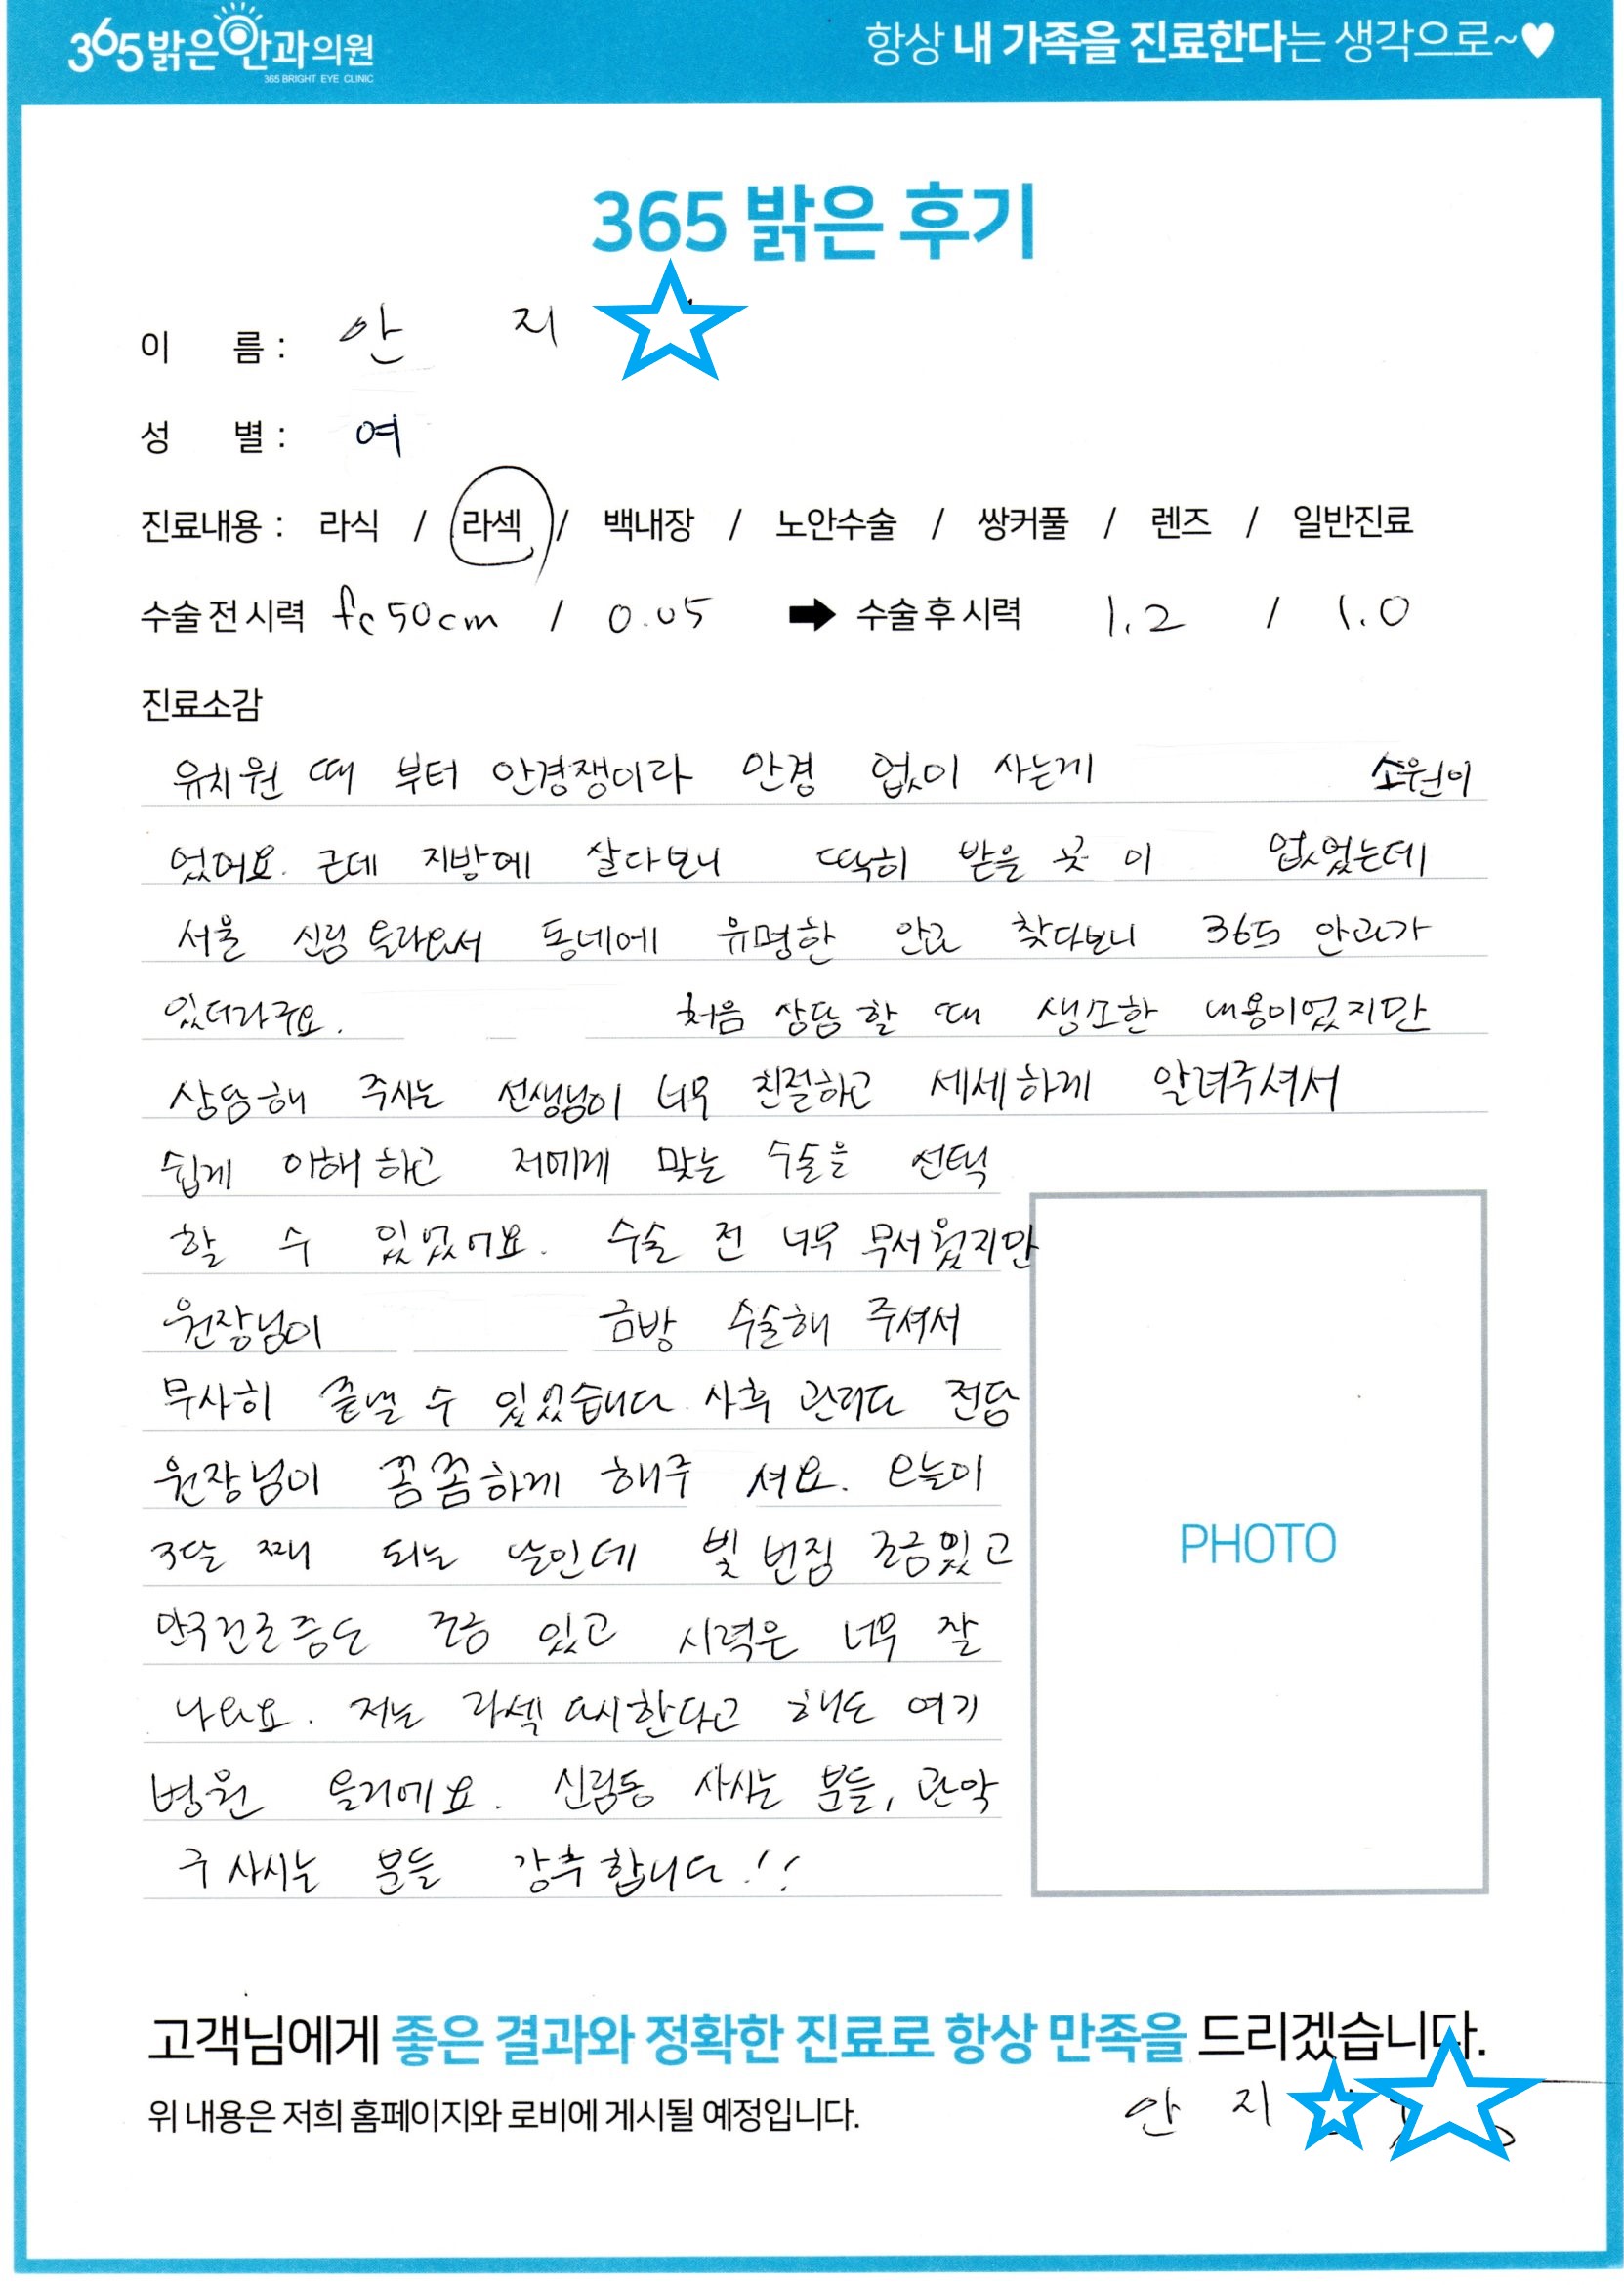 365밝은안과의원
365 BRIGHT EYE CLINIC
항상 내 가족을 진료한다는 생각으로~♥
365 밝은 후기
이 름 : 안 지
성 별 : 여
진료내용 : 라식 / 라섹 / 백내장 / 노안수술 / 쌍커풀 / 렌즈 / 일반진료
수술 전 시력 fc50cm / 0.05 ➡ 수술 후 시력 1.2 / 1.0
진료소감
유치원 때 부터 안경쟁이라 안경 없이 사는게 소원이
었어요. 근데 지방에 살다보니 딱히 받을 곳이 없었는데
서울 신림 올라와서 동네에 유명한 안과 찾다보니 365 안과가
있더라구요. 처음 상담 할 때 생소한 내용이었지만
상담해 주시는 선생님이 너무 친절하고 세세하게 알려주셔서
쉽게 이해하고 저에게 맞는 수술을 선택
할 수 있었어요. 수술 전 너무 무서웠지만
원장님이 금방 수술해 주셔서
무사히 끝낼 수 있었습니다. 사후 관리도 전담
원장님이 꼼꼼하게 해주셔요. 오늘이
3달 째 되는 날인데 빛 번짐 조금있고
안구건조증도 조금 있고 시력은 너무 잘
나와요. 저는 라섹 다시한다고 해도 여기
병원 올거에요. 신림동 사시는 분들, 관악
구 사시는 분들 강추합니다!!
PHOTO
고객님에게 좋은 결과와 정확한 진료로 항상 만족을 드리겠습니다.
위 내용은 저희 홈페이지와 로비에 게시될 예정입니다.
안 지